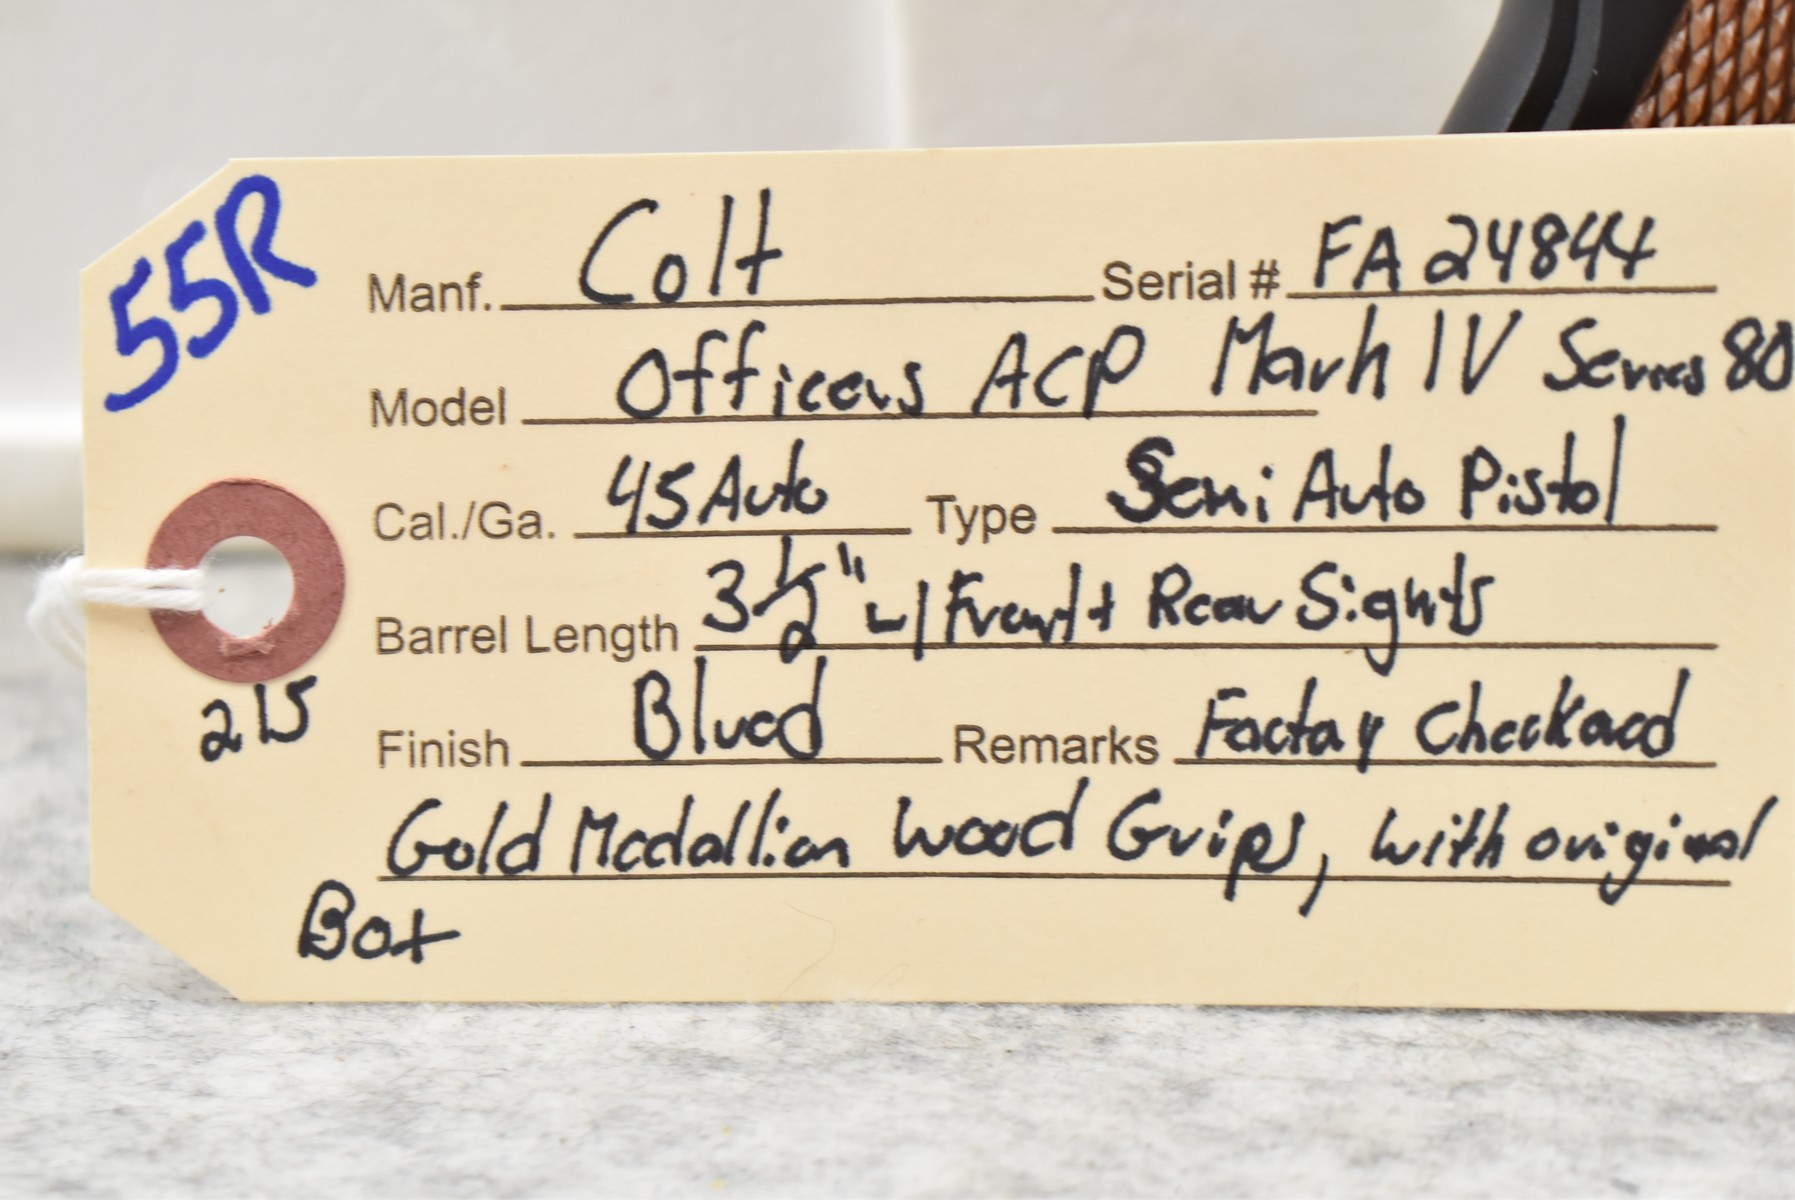 55R
Manf. Colt Serial # FA 24844
Model Officers ACP Mark IV Series 80
Cal./Ga. 45 Auto Type Semi Auto Pistol
Barrel Length 3 1/2" w/ Front + Rear Sights
215
Finish Blued Remarks Factory Checkered
Gold Medallion Wood Grips, with original
Box